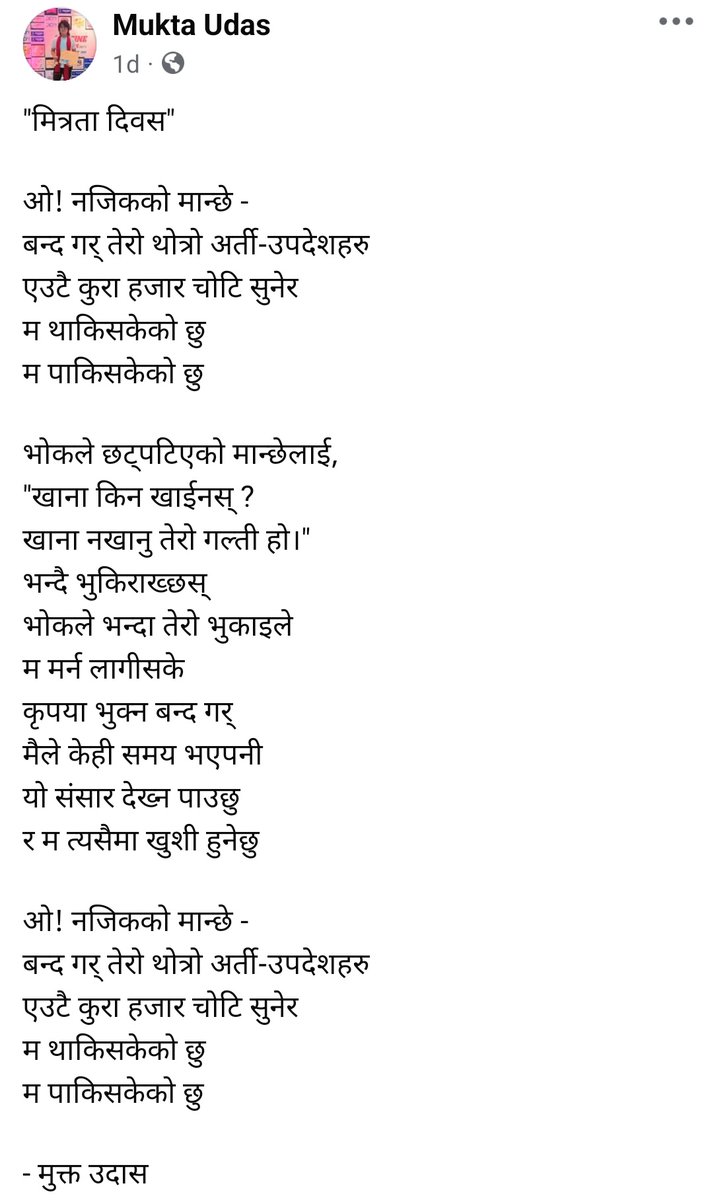 Mukta Udas
1d ·
"मित्रता दिवस"
ओ! नजिकको मान्छे -
बन्द गर् तेरो थोत्रो अर्ती-उपदेशहरु
एउटै कुरा हजार चोटि सुनेर
म थाकिसकेको छु
म पाकिसकेको छु
भोकले छट्पटिएको मान्छेलाई,
"खाना किन खाईनस् ?
खाना नखानु तेरो गल्ती हो।"
भन्दै भुकिराख्छस्
भोकले भन्दा तेरो भुकाइले
म मर्न लागीसके
कृपया भुक्न बन्द गर्
मैले केही समय भएपनी
यो संसार देख्न पाउछु
र म त्यसैमा खुशी हुनेछु
ओ! नजिकको मान्छे -
बन्द गर् तेरो थोत्रो अर्ती-उपदेशहरु
एउटै कुरा हजार चोटि सुनेर
म थाकिसकेको छु
म पाकिसकेको छु
- मुक्त उदास